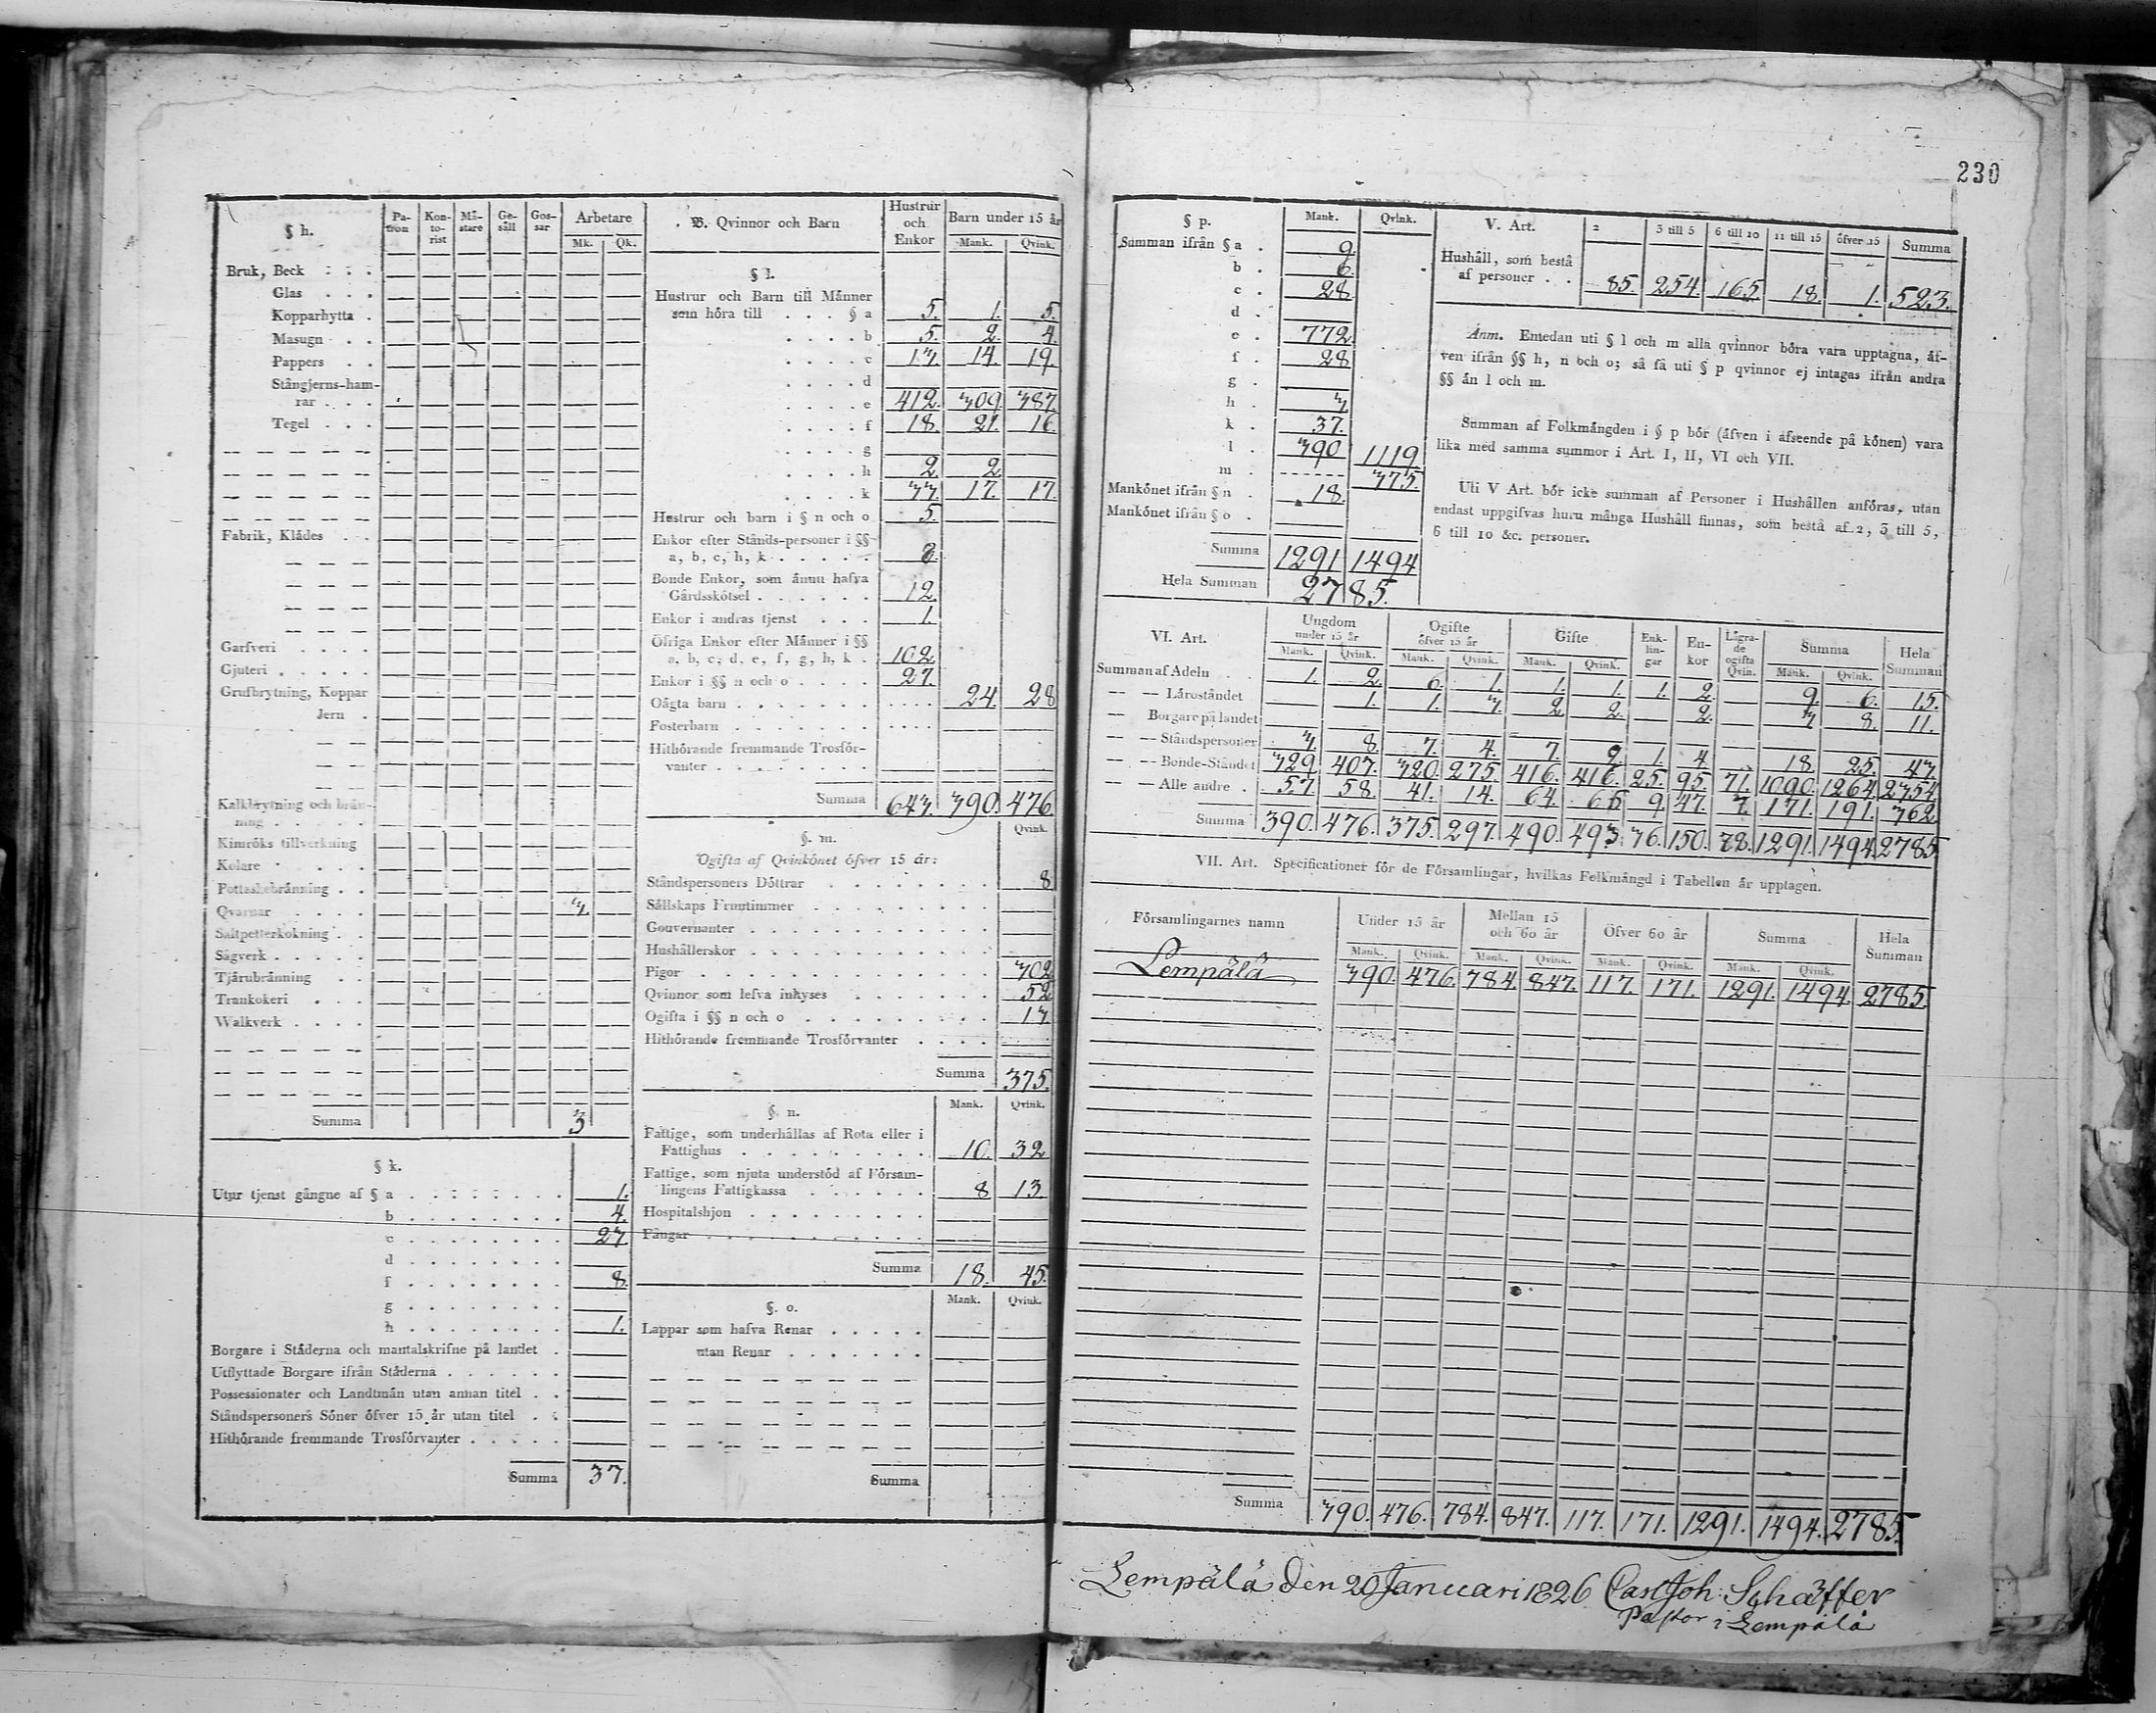 230
§ h.
Pa-tron Kon-to-rist Må-stare Ge-säll Gos-sar Arbetare
Mk. Qk.
Bruk, Beck
Glas
Kopparhytta
Masugn
Pappers
Stångjerns-ham-
rar
Tegel
Fabrik, Klädes
Garfveri
Gjuteri
Grufbrytning, Koppar
Jern
Kalkbrytning och brän-
ning
Kimröks tillverkning
Kolare
Pottaskebränning
Qvarnar 3.
Saltpetterkokning
Sågverk
Tjärubränning
Trankokeri
Walkverk
Summa 3
§ k.
Utur tjenst gångne af § a 1.
b 4.
c 23
d
f 8.
g
h 1.
Borgare i Städerna och mantalskrifne på landet
Utflyttade Borgare ifrån Städerna
Possessionater och Landtmän utan annan titel
Ståndspersoners Söner öfver 15 år utan titel
Hithörande fremmande Trosförvanter
Summa 37.
B. Qvinnor och Barn Hustrur och Enkor Barn under 15 år
Mank. Qvink.
§ l.
Hustrur och Barn till Männer
som höra till § a 5. 1. 5.
b 5. 2. 4.
c 13. 14. 19.
d
e 412. 309. 387.
f 18. 21. 16.
g
h 2. 2.
k 33. 17. 17.
Hustrur och barn i § n och o 5.
Enkor efter Stånds-personer i §§
a, b, c, h, k 8.
Bonde Enkor, som ännu hafva
Gårdsskötsel 12.
Enkor i andras tjenst 1.
Öfriga Enkor efter Männer i §§
a, b, c, d, e, f, g, h, k 102.
Enkor i §§ n och o 27.
Oägta barn 24. 28
Fosterbarn
Hithörande fremmande Trosför-
vanter
Summa 643. 390. 476.
§. m. Qvink.
Ogifta af Qvinkönet öfver 15 år:
Ståndspersoners Döttrar 8
Sällskaps Fruntimmer
Gouvernanter
Hushållerskor
Pigor 302
Qvinnor som lefva inhyses 52
Ogifta i §§ n och o 13
Hithörande fremmande Trosförvanter
Summa 375.
§. n. Mank. Qvink.
Fattige, som underhållas af Rota eller i
Fattighus 10. 32
Fattige, som njuta understöd af Församlingens
Fattigkassa 8 13.
Hospitalshjon
Fångar
Summa 18. 45.
§. o. Mank. Qvink.
Lappar som hafva Renar
utan Renar
Summa
§ p. Mank. Qvink.
Summan ifrån § a 9
b 6.
c 28
d
e 772.
f 28
g
h 3
k 37.
l 390 1119
m 375.
Mankönet ifrån § n 18.
Mankönet ifrån § o
Summa 1291 1494
Hela Summan 2785.
V. Art. 2 3 till 5 6 till 10 11 till 15 öfver 15 Summa
Hushåll, som bestå
af personer 85. 254. 165. 18. 1. 523.
Anm. Emedan uti § l och m alla qvinnor böra vara upptagna, äf-
ven ifrån §§ h, n och o; så få uti § p qvinnor ej intagas ifrån andra
§§ än l och m.
Summan af Folkmängden i § p bör (äfven i afseende på könen) vara
lika med samma summor i Art. I, II, VI och VII.
Uti V Art. bör icke summan af Personer i Hushållen anföras, utan
endast uppgifvas huru många Hushåll finnas, som bestå af 2, 3 till 5,
6 till 10 &c. personer.
VI. Art. Ungdom under 15 år Ogifte öfver 15 år Gifte Enk-lin-gar En-kor Lägra-de ogifta Qvin. Summa Hela Summan
Mank. Qvink. Mank. Qvink. Mank. Qvink. Mank. Qvink.
Summan af Adeln 1. 2. 6. 1. 1. 1. 1. 2. 9. 6. 15.
Läroståndet 1. 1. 3. 2. 2. 2. 3. 8. 11.
Borgare på landet
Ståndspersoner 3. 8. 7. 4. 7. 9. 1. 4 18. 25. 43.
Bonde-Ståndet 329. 407. 320. 275. 416. 416. 25. 95. 71. 1090. 1264. 2354.
Alle andre 57. 58. 41. 14. 64. 65 9. 47. 7. 171. 191. 362
Summa 390. 476. 375. 297. 490. 493. 36. 150. 78. 1291. 1494. 2785.
VII. Art. Specificationer för de Församlingar, hvilkas Folkmängd i Tabellen är upptagen.
Församlingarnes namn Under 15 år Mellan 15 och 60 år Öfver 60 år Summa Hela Summan
Mank. Qvink. Mank. Qvink. Mank. Qvink. Mank. Qvink.
Lempälä 390. 476. 784. 847. 117. 171. 1291. 1494. 2785.
Summa 390. 476. 784. 847. 117. 171. 1291. 1494. 2785.
Lempälä den 20 Januari 1826 Carl Joh: Schäffer
Pastor i Lempälä